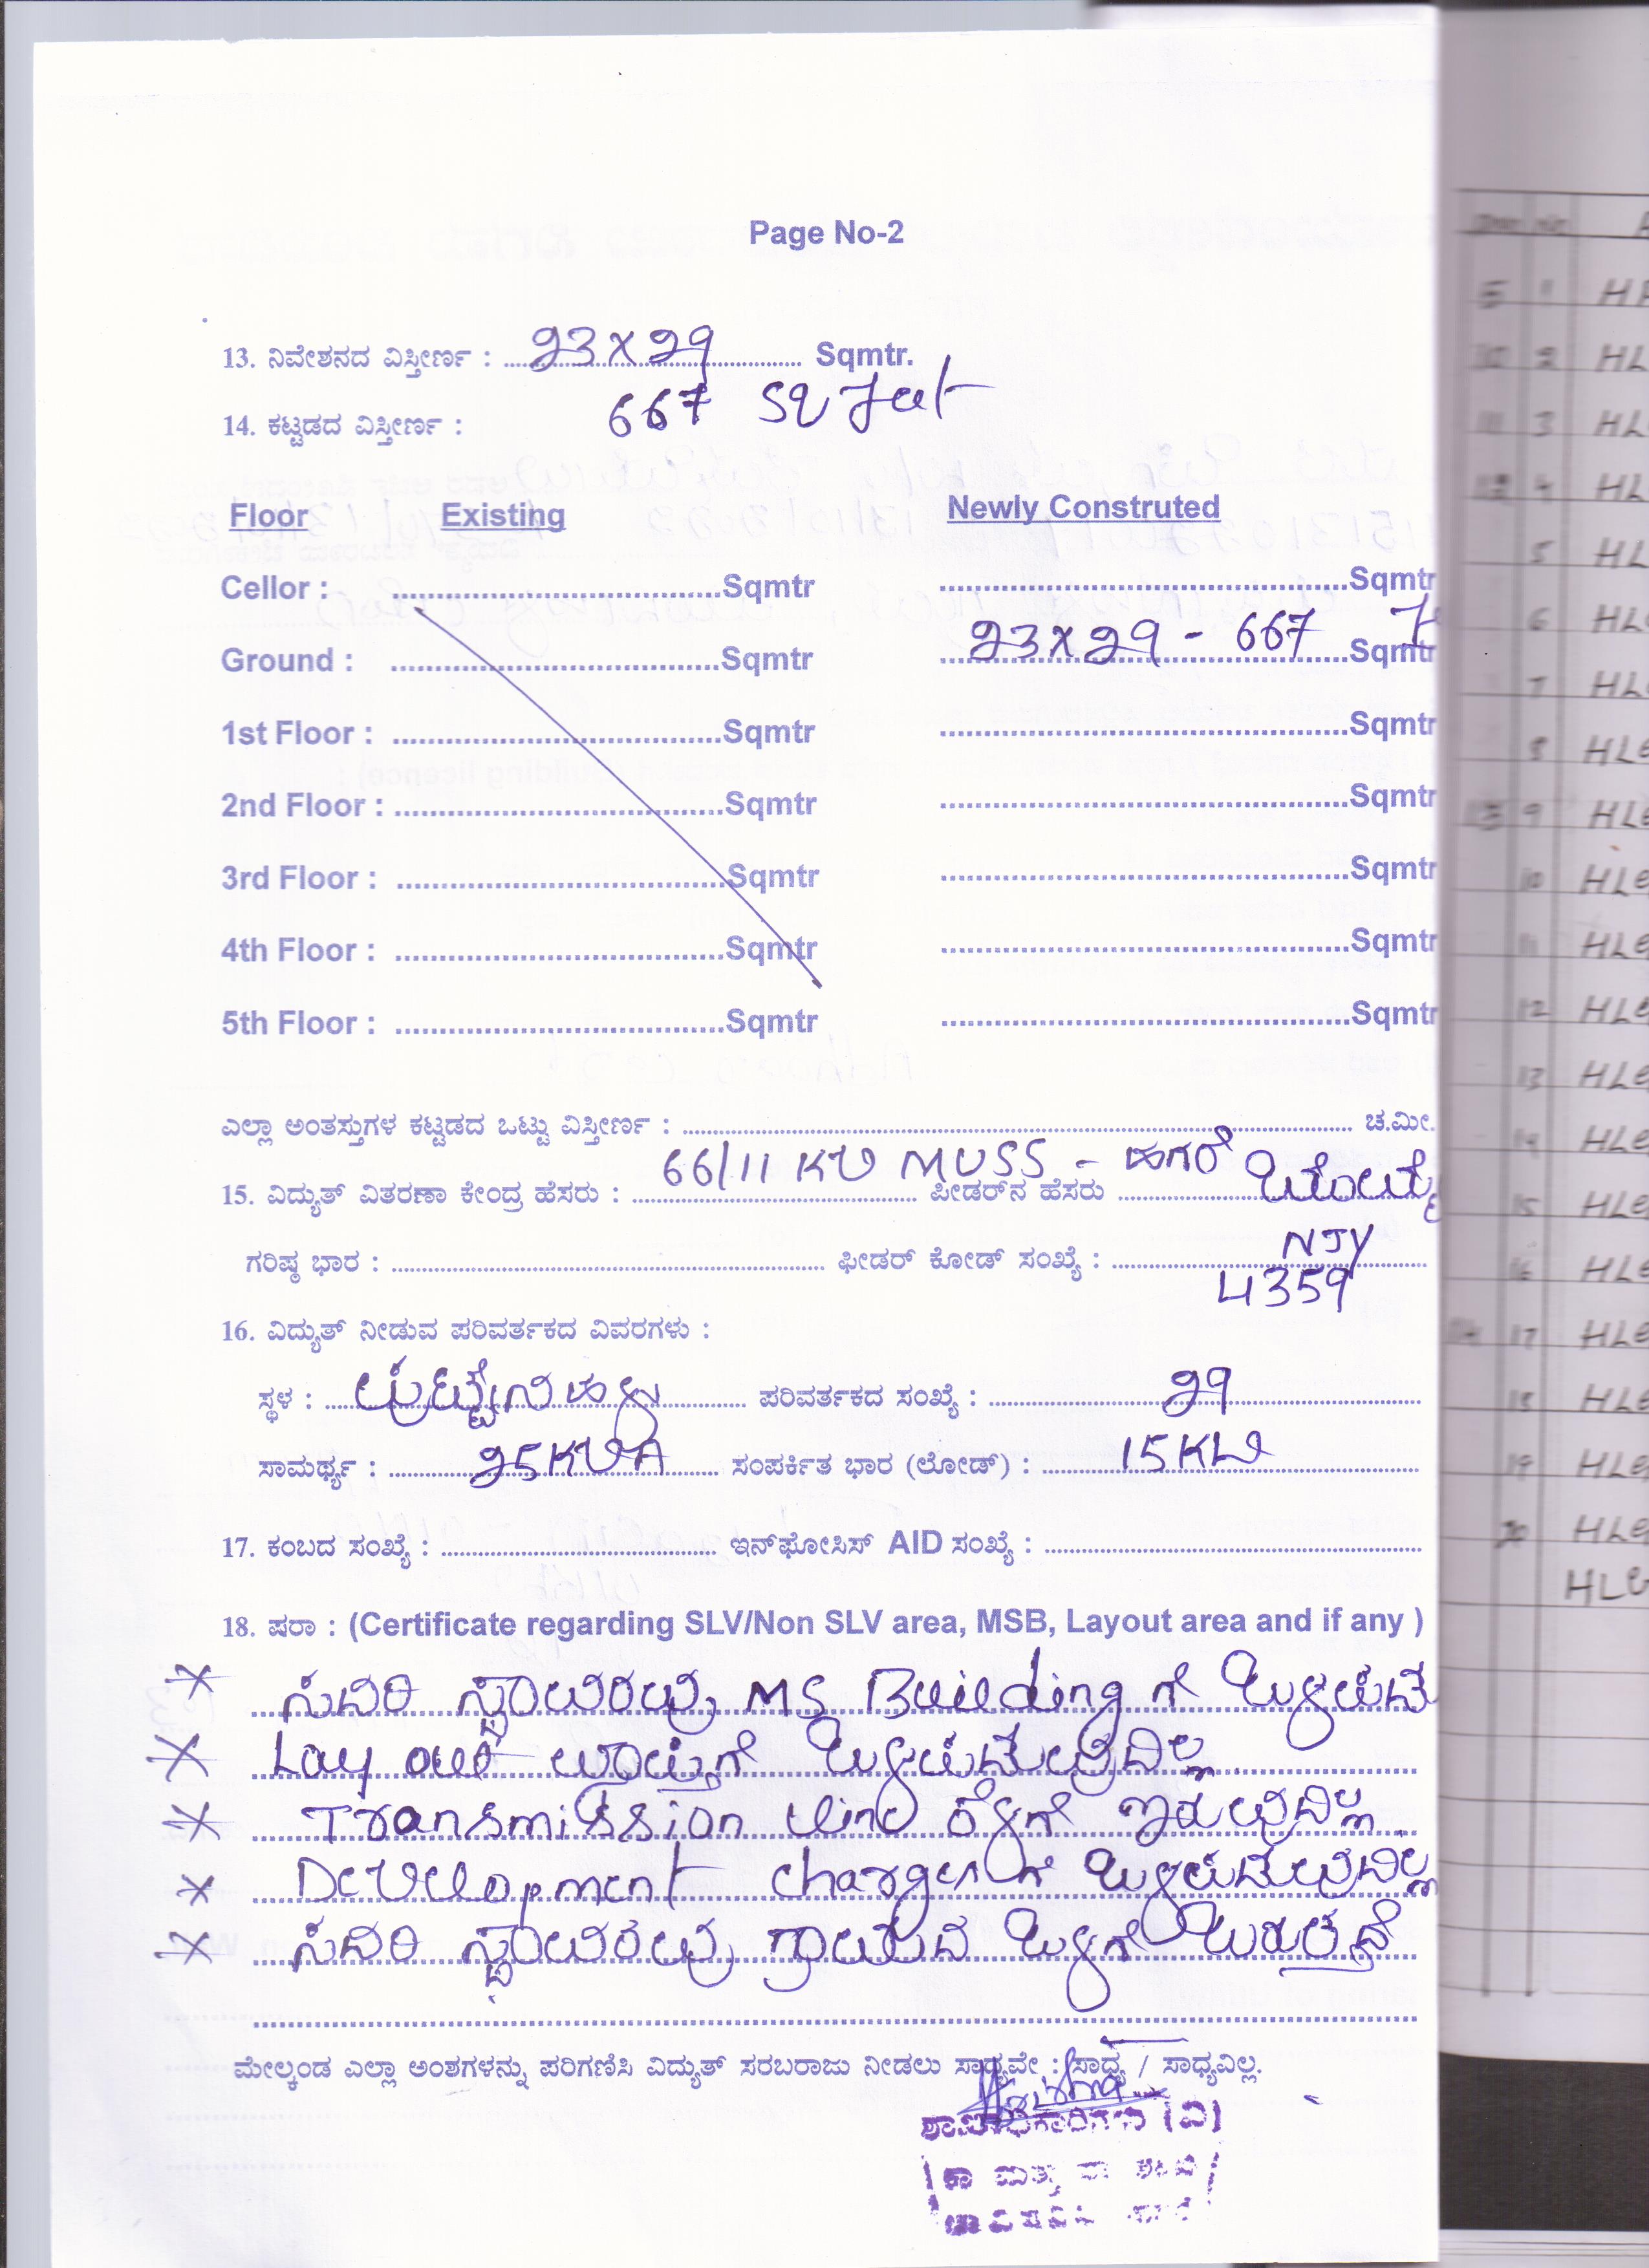 Page No-2
13. ನಿವೇಶನದ ವಿಸ್ತೀರ್ಣ : 23 x 29 Sqmtr.
14. ಕಟ್ಟಡದ ವಿಸ್ತೀರ್ಣ : 667 sq feet
Floor Existing Newly Construted
Cellor : Sqmtr Sqmtr
Ground : Sqmtr 23 x 29 - 667 Sqmtr
1st Floor : Sqmtr Sqmtr
2nd Floor : Sqmtr Sqmtr
3rd Floor : Sqmtr Sqmtr
4th Floor : Sqmtr Sqmtr
5th Floor : Sqmtr Sqmtr
ಎಲ್ಲಾ ಅಂತಸ್ತುಗಳ ಕಟ್ಟಡದ ಒಟ್ಟು ವಿಸ್ತೀರ್ಣ : ಚ.ಮೀ.
15. ವಿದ್ಯುತ್ ವಿತರಣಾ ಕೇಂದ್ರ ಹೆಸರು : 66/11 KV MUSS - ಹಗರೆ ಪೀಡರ್‌ನ ಹೆಸರು
NJY
ಗರಿಷ್ಠ ಭಾರ : ಫೀಡರ್ ಕೋಡ್ ಸಂಖ್ಯೆ : 4359
16. ವಿದ್ಯುತ್ ನೀಡುವ ಪರಿವರ್ತಕದ ವಿವರಗಳು :
ಸ್ಥಳ : ಪರಿವರ್ತಕದ ಸಂಖ್ಯೆ : 29
ಸಾಮರ್ಥ್ಯ : 25KVA ಸಂಪರ್ಕಿತ ಭಾರ (ಲೋಡ್) : 15KW
17. ಕಂಬದ ಸಂಖ್ಯೆ : ಇನ್‌ಫೋಸಿಸ್ AID ಸಂಖ್ಯೆ :
18. ಷರಾ : (Certificate regarding SLV/Non SLV area, MSB, Layout area and if any )
ಸದರಿ ಸ್ಥಾವರವು MS Building ಗೆ ಒಳಪಡ
Lay out ವ್ಯಾಪ್ತಿಗೆ ಒಳಪಡುವುದಿಲ್ಲ
Transmission line ಕೆಳಗೆ ಇರುವುದಿಲ್ಲ
Development charges ಗೆ ಒಳಪಡುವುದಿಲ್ಲ
ಸದರಿ ಸ್ಥಾವರವು ಗ್ರಾಮದ ಒಳಗೆ ಬರುತ್ತದೆ
ಮೇಲ್ಕಂಡ ಎಲ್ಲಾ ಅಂಶಗಳನ್ನು ಪರಿಗಣಿಸಿ ವಿದ್ಯುತ್ ಸರಬರಾಜು ನೀಡಲು ಸಾಧ್ಯವೇ : ಸಾಧ್ಯ / ಸಾಧ್ಯವಿಲ್ಲ.
ಶಾಖಾಧಿಕಾರಿಗಳು (ವಿ)